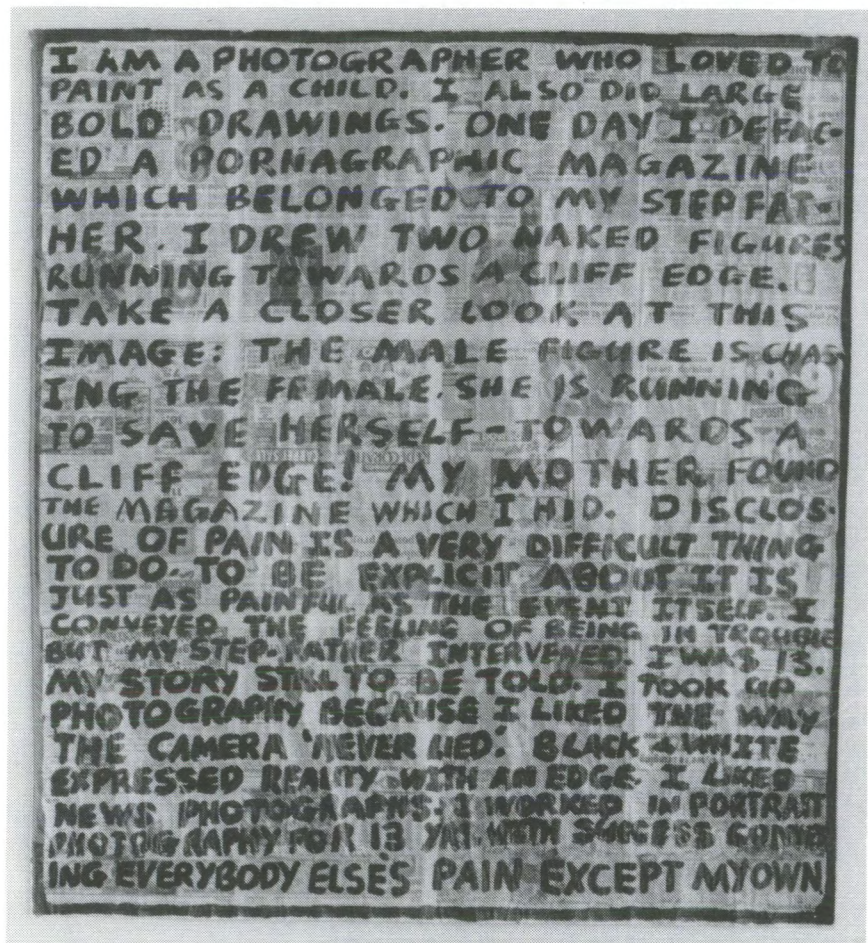 I AM A PHOTOGRAPHER WHO LOVED TO
PAINT AS A CHILD. I ALSO DID LARGE
BOLD DRAWINGS. ONE DAY I DEFAC-
ED A PORNAGRAPHIC MAGAZINE
WHICH BELONGED TO MY STEPFAT-
HER. I DREW TWO NAKED FIGURES
RUNNING TOWARDS A CLIFF EDGE.
TAKE A CLOSER LOOK AT THIS
IMAGE: THE MALE FIGURE IS CHAS-
ING THE FEMALE. SHE IS RUNNING
TO SAVE HERSELF-TOWARDS A
CLIFF EDGE! MY MOTHER FOUND
THE MAGAZINE WHICH I HID. DISCLOS-
URE OF PAIN IS A VERY DIFFICULT THING
TO DO. TO BE EXPLICIT ABOUT IT IS
JUST AS PAINFUL AS THE EVENT ITSELF. I
CONVEYED THE FEELING OF BEING IN TROUBLE
BUT MY STEP-FATHER INTERVENED. I WAS 13.
MY STORY STILL TO BE TOLD. I TOOK UP
PHOTOGRAPHY BECAUSE I LIKED THE WAY
THE CAMERA 'NEVER LIED'. BLACK & WHITE
EXPRESSED REALITY WITH AN EDGE. I LIKED
NEWS PHOTOGRAPHS. I WORKED IN PORTRAIT
PHOTOGRAPHY FOR 13 YRS. WITH SUCCESS
ING EVERYBODY ELSE'S PAIN EXCEPT MY OWN